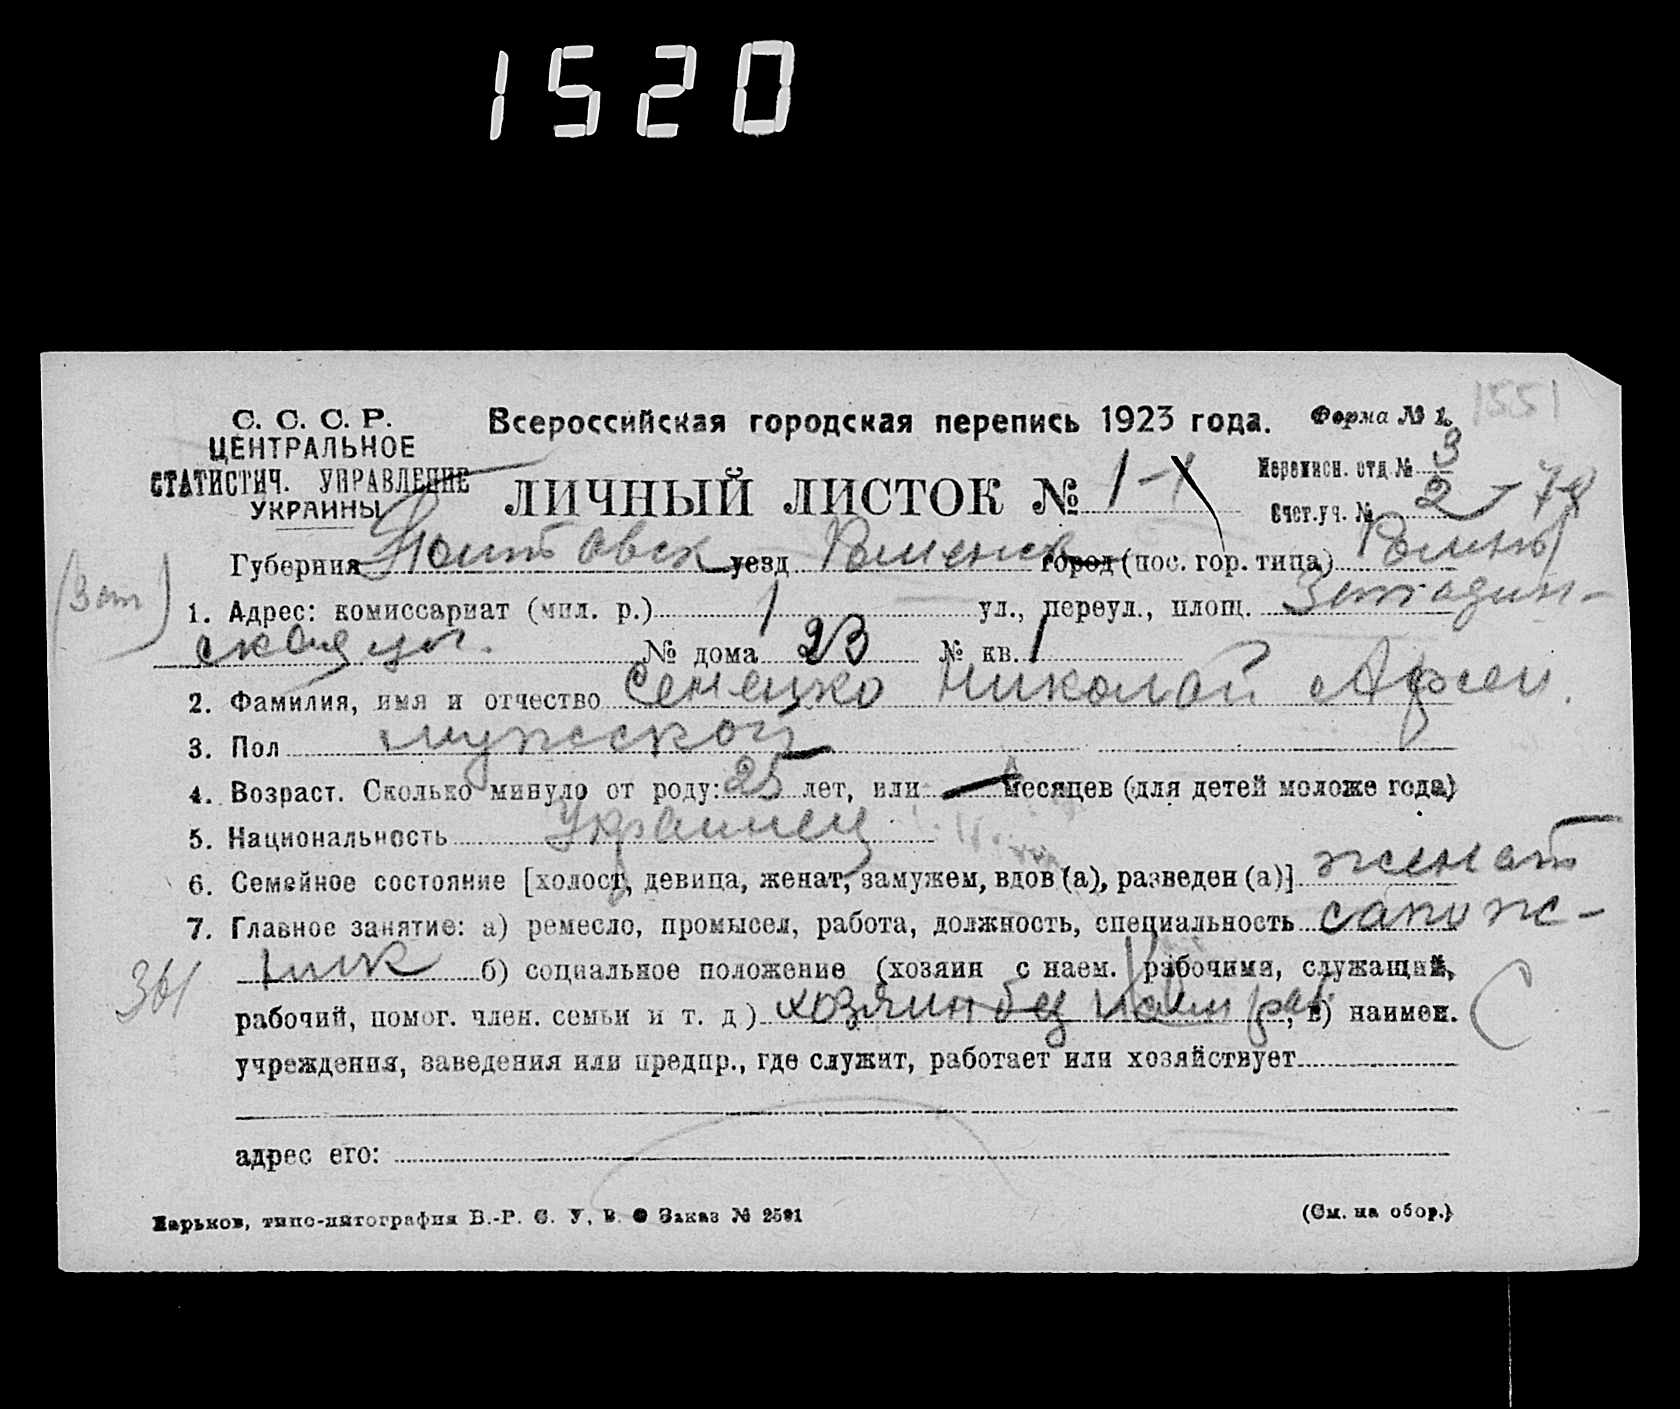 1520
1551
С. С. С. Р.
ЦЕНТРАЛЬНОЕ
СТАТИСТИЧ. УПРАВЛЕНИЕ
УКРАИНЫ
Всероссийская городская перепись 1923 года. Форма № 1.
ЛИЧНЫЙ ЛИСТОК № 1-1
Переписн. отд № 3
Счет.уч. № 2 - 78
Губерния Полтавск уезд Роменск город (пос. гор. типа) Ромны
1. Адрес: комиссариат (мил. р.) 1 ул., переул., площ.
ская № дома 23 № кв. 1
2. Фамилия, имя и отчество Сенецко Николай Арсен.
3. Пол мужской
4. Возраст. Сколько минуло от роду: 25 лет, или — месяцев (для детей моложе года)
5. Национальность Украинец
6. Семейное состояние [холост, девица, женат, замужем, вдов (а), разведен (а)] женат
7. Главное занятие: а) ремесло, промысел, работа, должность, специальность сапож-
361 ник б) социальное положение (хозяин с наем. рабочими, служащий,
рабочий, помог. член. семьи и т. д) хозяин без наем раб., в) наимен.
учреждения, заведения или предпр., где служит, работает или хозяйствует
адрес его:
Харьков, типо-литография В.-Р. С. У. В. О Заказ № 2591 (См. на обор.)